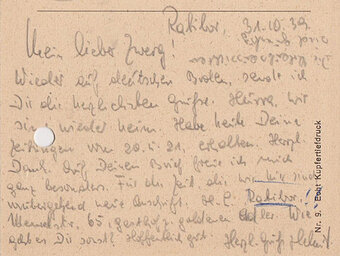 Ratibor, 31.10.39.
Mein lieber Zwerg!
Wieder auf deutschem Boden, sende ich
Dir die herzlichsten Grüße. Hurra, wir
sind wieder heim. Habe heute Deine
Zeitungen vom 20. u. 21. erhalten. Herzl.
Dank. Auf Deinen Brief freue ich mich
ganz besonders. Für die Zeit, die wir hier sind
vorübergehend neue Anschrift: H. G. Ratibor
65, Gasthof z. goldenen Adler. Wie
geht es Dir sonst? Hoffentlich gut. Herzl. Grüße
Nr. 9. Echt Kupfertiefdruck